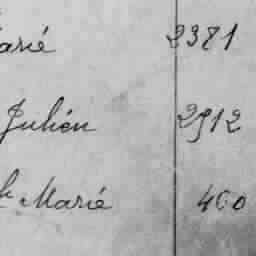 arié 2381
Julien 2912
h Marié 400